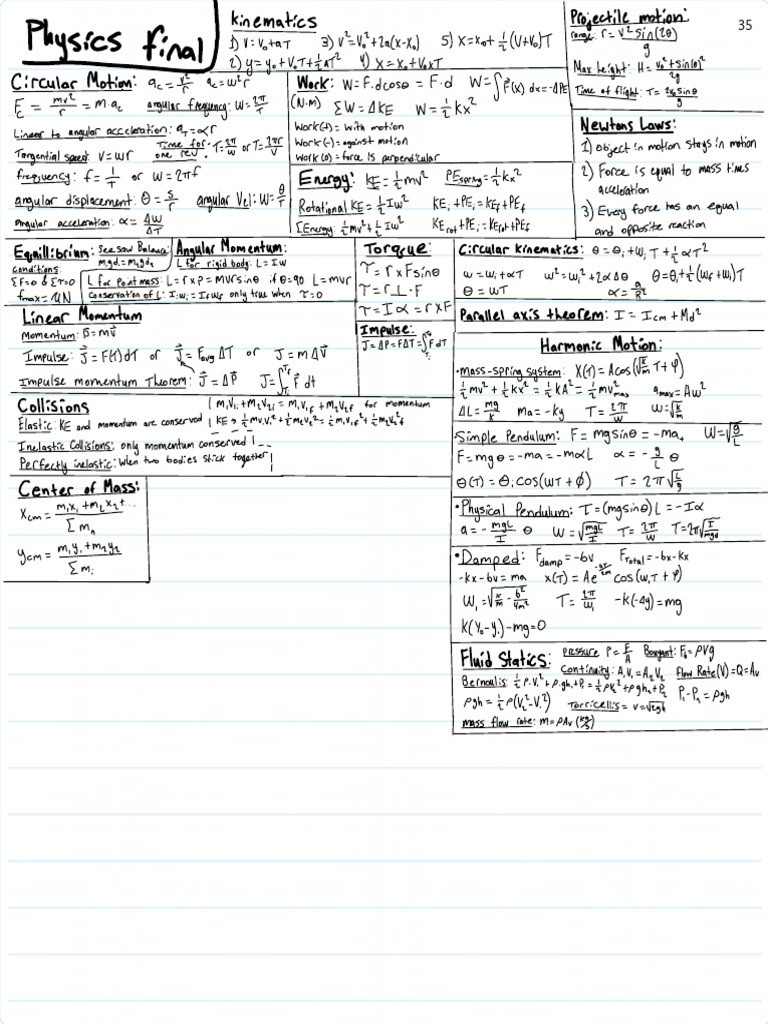 Physics final
35
Kinematics
1) V=V₀+aT 3) V²=V₀²+2a(x-x₀) 5) X=x₀+½(V+V₀)T
2) y=y₀+V₀T+½aT² 4) X=X₀+V₀xT
Projectile motion:
range: r=V²sin(2θ)/g
Max height: H=V₀²sin(θ)²/2g
Time of flight: T=2V₀sinθ/g
Circular Motion: a_c=V²/r a_c=ω²r
F_c=mv²/r=m·a_c angular frequency: W=2π/T
Linear to angular acceleration: a_T=αr
Tangential speed: V=wr Time for one rev. T=2π/w or T=2πr/V
frequency: f=1/T or W=2πf
angular displacement: θ=s/r angular Vel: W=θ/T
angular acceleration: α=ΔW/ΔT
Work: W=F·dcosθ=F·d W=∫F(x) dx=-ΔPE
(N·m) ΣW=ΔKE W=½kx²
Work(+): with motion
Work(-): against motion
Work(0)=force is perpendicular
Energy: KE=½mv² PEspring=½kx²
Rotational KE=½Iw² KEᵢ+PEᵢ=KE_f+PE_f
ΣEnergy ½mv²+½Iw² KErot+PEᵢ=KErot+PE_f
Newtons Laws:
1) object in motion stays in motion
2) Force is equal to mass times
acceleration
3) Every force has an equal
and opposite reaction
Equilibrium: See saw Balance:
m₁gd₁=m₂gd₂
conditions:
ΣF=0 & Στ=0
fmax=μN
Angular Momentum:
L for rigid body: L=Iw
L for point mass: L=r×P=mvrsinθ if θ=90 L=mvr
Conservation of L: Iᵢwᵢ=I_fw_f only true when τ=0
Torque:
τ=r×Fsinθ
τ=r⊥·F
τ=Iα=r×F
Circular kinematics: θ=θᵢ+wᵢT+½αT²
w=wᵢ+αT w²=wᵢ²+2αΔθ θ=θᵢ+½(w_f+wᵢ)T
θ=wT α=a/R
Parallel axis theorem: I=Icm+Md²
Linear Momentum
Momentum: p=mv
Impulse: J=F(T)dT or J=FavgΔT or J=mΔV
Impulse momentum Theorem: J=ΔP J=∫F dt
Impulse:
J=ΔP=FΔT=∫F dT
Collisions
m₁V₁ᵢ+m₂V₂ᵢ=m₁V₁f+m₂V₂f for momentum
Elastic: KE and momentum are conserved KE→½m₁V₁²+½m₂V₂²=½m₁V₁f²+½m₂V₂f²
Inelastic Collisions: only momentum conserved
Perfectly inelastic: When two bodies stick together
Harmonic Motion:
• mass-spring system: X(T)=Acos(√(k/m)T+φ)
½mv²+½kx²=½kA²=½mv²max amax=Aw²
ΔL=mg/k ma=-ky T=2π/W W=√(k/m)
• Simple Pendulum: F=mgsinθ=-ma W=√(g/L)
F=mgθ=-ma=-mαL α=-g/L θ
θ(T)=θᵢcos(wT+φ) T=2π√(L/g)
• Physical Pendulum: τ=(mgsinθ)L=-Iα
a=-mgL/I θ W=√(mgL/I) T=2π/W T=2π√(I/mgd)
• Damped: Fdamp=-bv FTotal=-bx-kx
-kx-bv=ma x(T)=Ae^(-bT/2m)cos(w₁T+φ)
W₁=√(k/m-b²/4m²) T=2π/W₁ -k(-Δy)=mg
K(Y₀-y₁)-mg=0
Center of Mass:
Xcm=m₁x₁+m₂x₂+.../Σmₙ
ycm=m₁y₁+m₂y₂/Σmᵢ
Fluid Statics: Pressure P=F/A Buoyant: F_B=ρVg
Continuity: A₁V₁=A₂V₂ Flow Rate(V)=Q=Av
Bernoulis: ½ρ₁V₁²+ρ₁gh₁+P₁=½ρV₂²+ρgh₂+P₂
ρgh=½ρ(V₂²-V₁²) Torricellis=v=√2gh P₁-P₂=ρgh
mass flow rate: m=ρAv (kg/s)